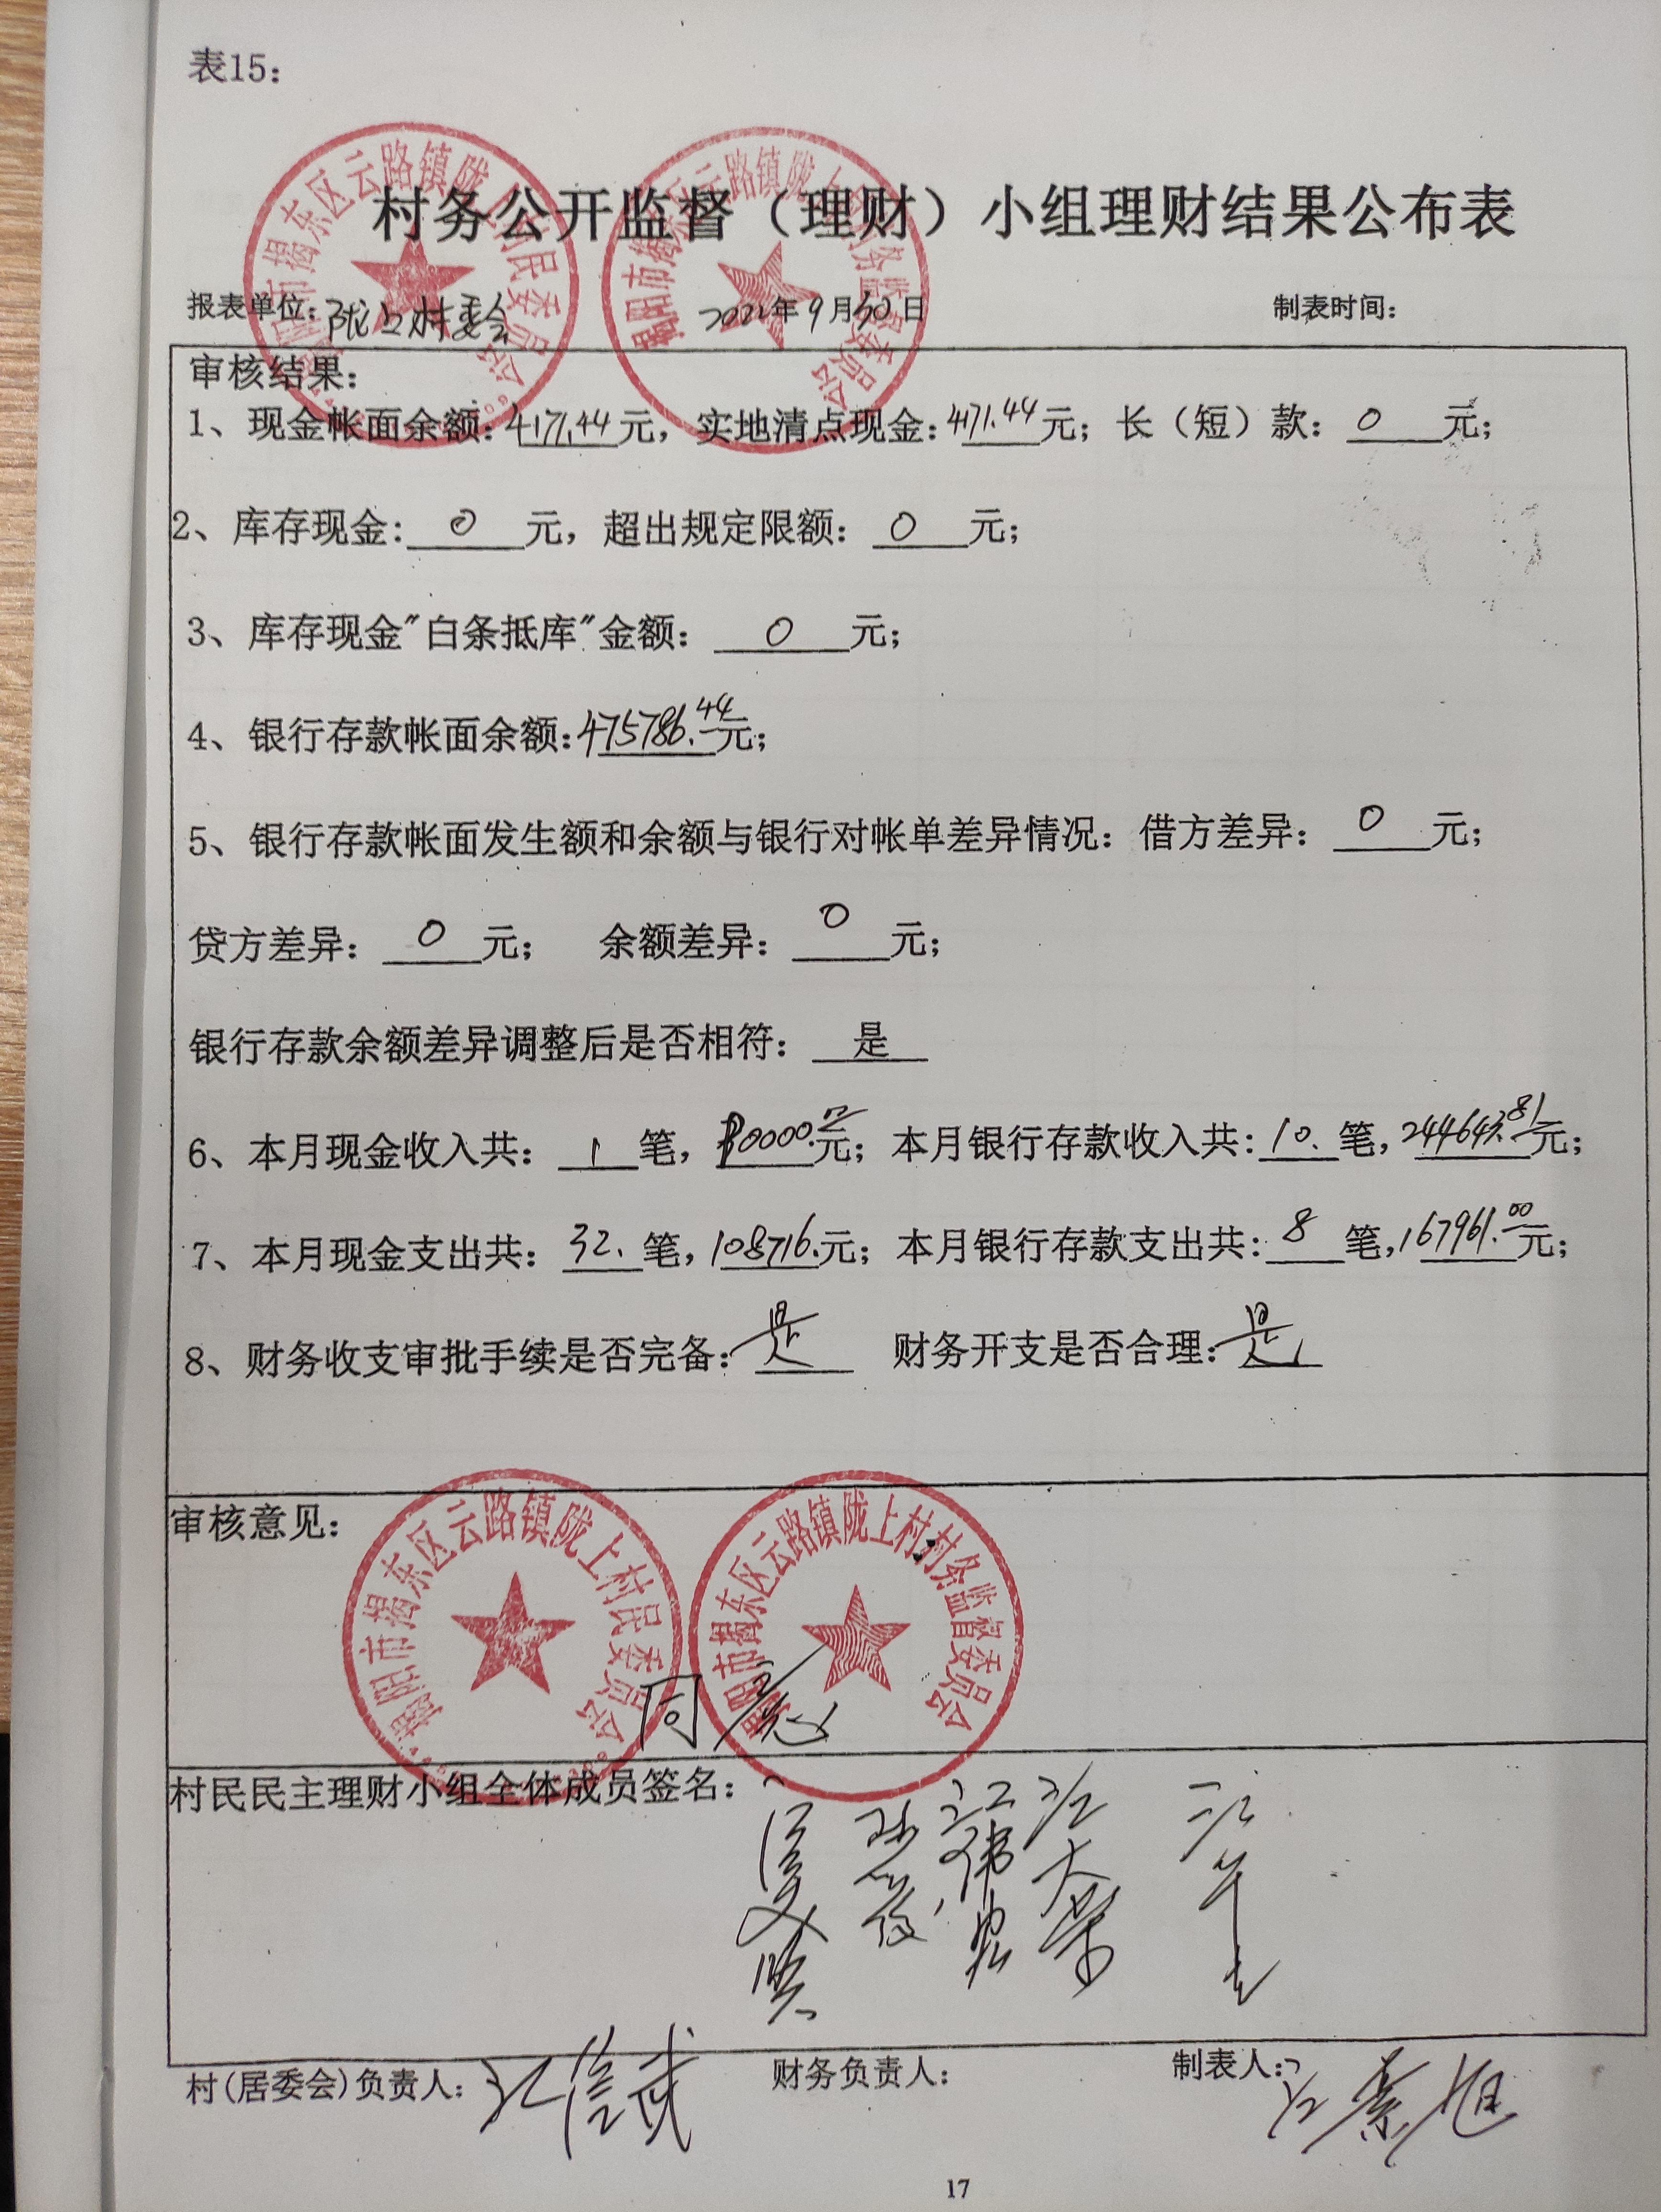 表15：
村务公开监督（理财）小组理财结果公布表
报表单位：陇上村委会 2022年9月30日 制表时间：
审核结果：
1、现金帐面余额：4171.44元，实地清点现金：4171.44元；长（短）款：0元；
2、库存现金：0元，超出规定限额：0元；
3、库存现金"白条抵库"金额：0元；
4、银行存款帐面余额：475786.44元；
5、银行存款帐面发生额和余额与银行对帐单差异情况：借方差异：0元；
贷方差异：0元；余额差异：0元；
银行存款余额差异调整后是否相符：是
6、本月现金收入共：1笔，元；本月银行存款收入共：10.笔，244643.81元；
7、本月现金支出共：32.笔，108716.元；本月银行存款支出共：8笔，167961.00元；
8、财务收支审批手续是否完备：是 财务开支是否合理：是
审核意见：
揭阳市揭东区云路镇陇上村民委员会
揭阳市揭东区云路镇陇上村村务监督委员会
同意
村民民主理财小组全体成员签名：
江大荣
村(居委会)负责人：江信武 财务负责人： 制表人：
17